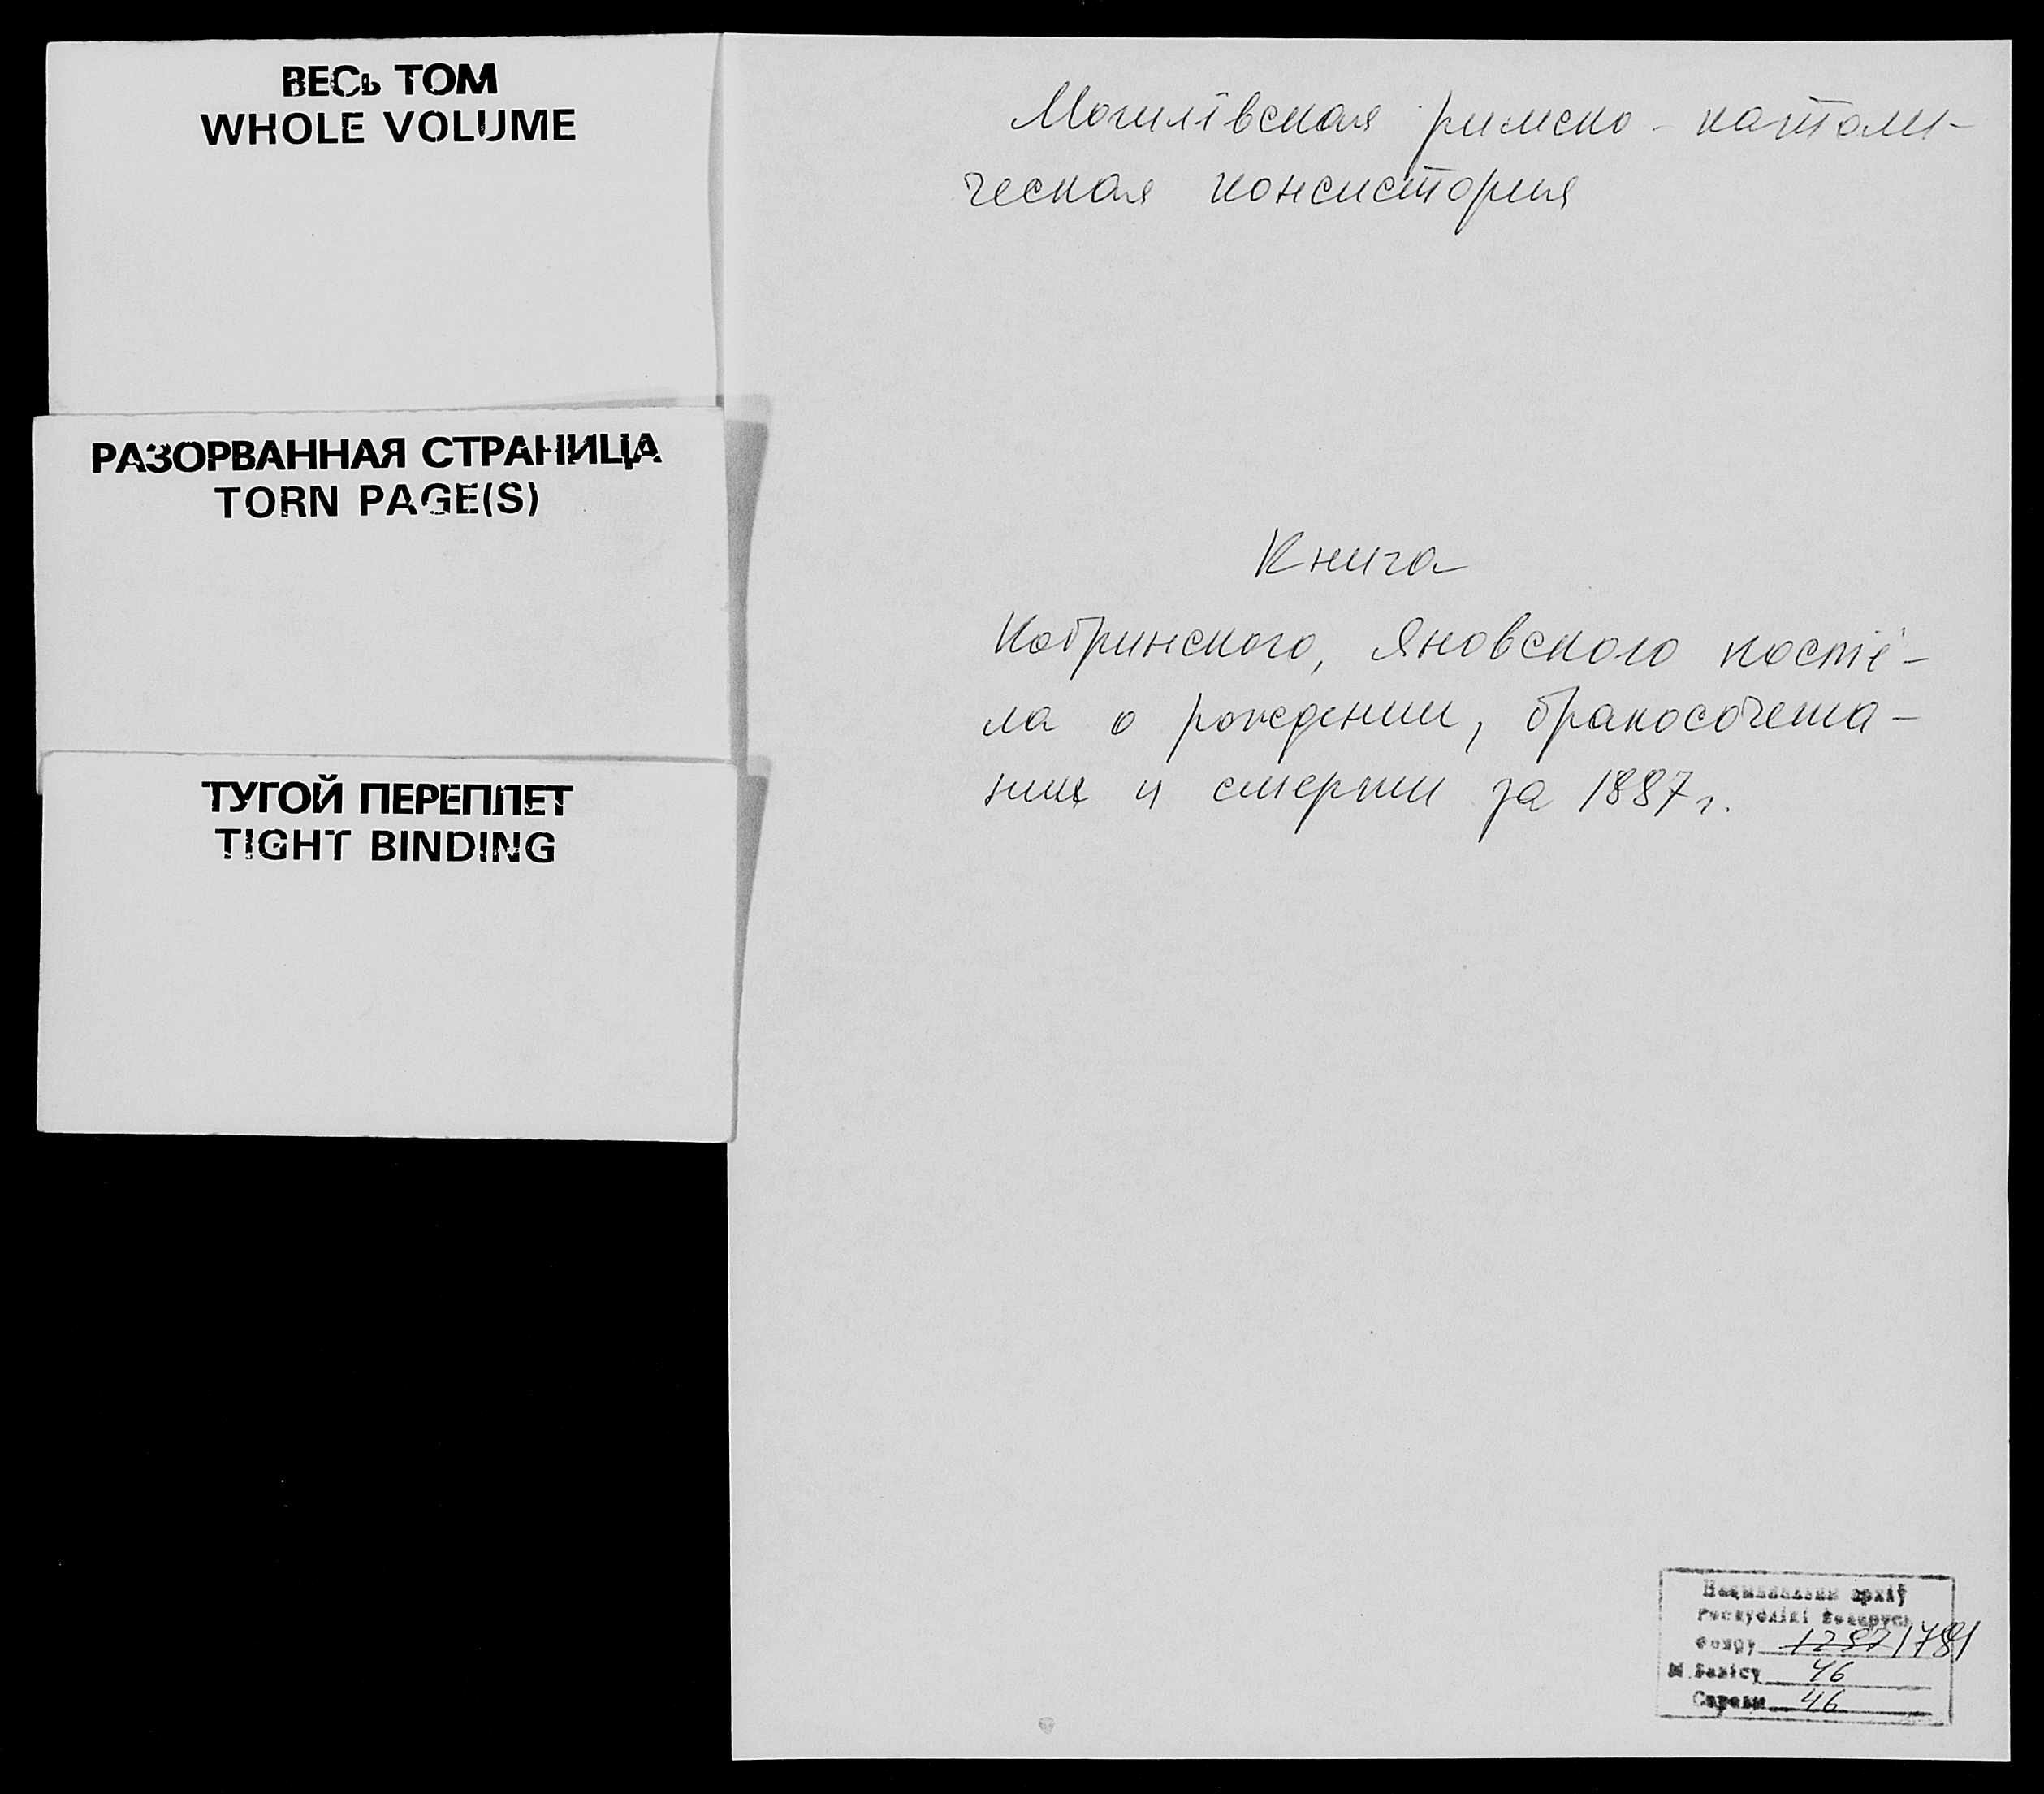 ВЕСЬ ТОМ
WHOLE VOLUME
РАЗОРВАННАЯ СТРАНИЦА
TORN PAGE(S)
ТУГОЙ ПЕРЕПЛЕТ
TIGHT BINDING
Могилёвская римско-католи-
ческая консистория
Книга
Кобринского, Яновского костё-
ла о рождении, бракосочета-
нии и смерти за 1887 г.
Нацыянальны архіў
Рэспублікі Беларусь
Фонду 1297 1781
№ Вопісу 46
Справы 46